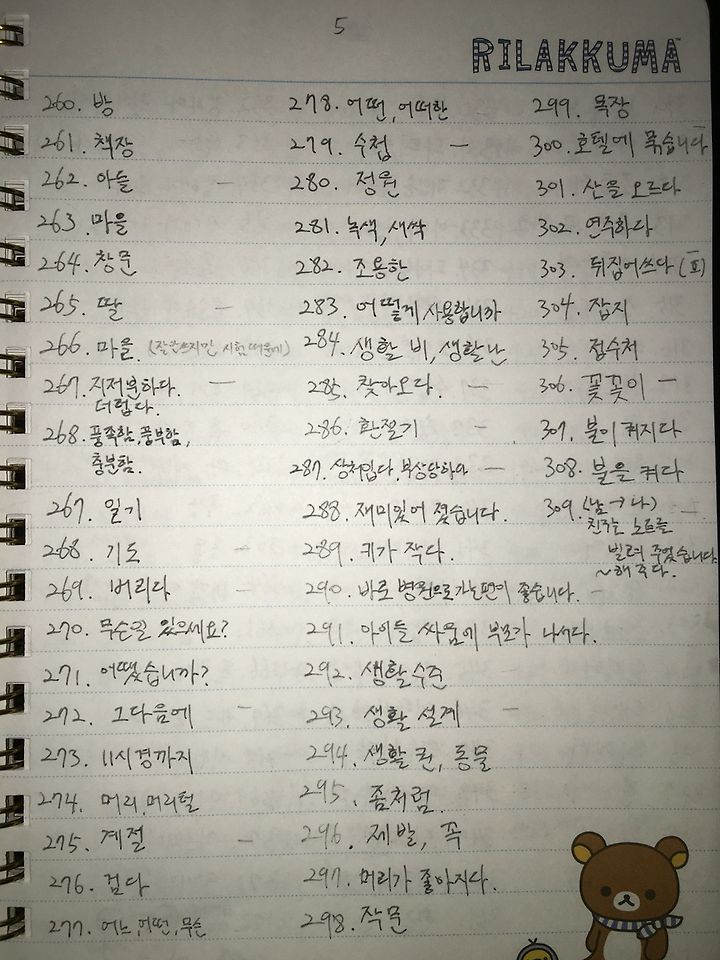 5
RILAKKUMA
260. 방
261. 책장
262. 아들 —
263. 마을
264. 창문
265. 딸 —
266. 마을
267. 지저분하다. —
더럽다.
268. 풍족함, 풍부함,
충분함.
267. 일기
268. 기도 —
269. 버리다 —
270. 무슨일 있으세요?
271. 어땠습니까?
272. 그다음에 —
273. 11시경까지
274. 머리, 머리털
275. 계절 —
276. 걷다
277. 어느, 어떤, 무슨
278. 어떤, 어떠한
279. 수첩 —
280. 정원
281. 녹색, 새싹
282. 조용한
283. 어떻게 사용합니까
284. 생활 비, 생활난
285. 찾아오다. —
286. 환절기 -
287. 상처입다, 부상당하다 —
288. 재미있어 졌습니다.
289. 키가 작다.
290. 바로 병원으로가는편이 좋습니다. —
291. 아이들 싸움에 부모가 나서다.
292. 생활수준
293. 생활 설계 —
294. 생활 권, 동물
295. 좀처럼.
296. 제발, 꼭
297. 머리가 좋아지다.
298. 작문
299. 목장
300. 호텔에 묵습니다
301. 산을 오르다
302. 연주하다
303. 뒤집어쓰다
304. 잡지
305. 접수처
306. 꽃꽂이 —
307. 불이 켜지다
308. 불을 켜다
309. (남→나) —
친구는 노트를
빌려 주었습니다.
~해 주다.